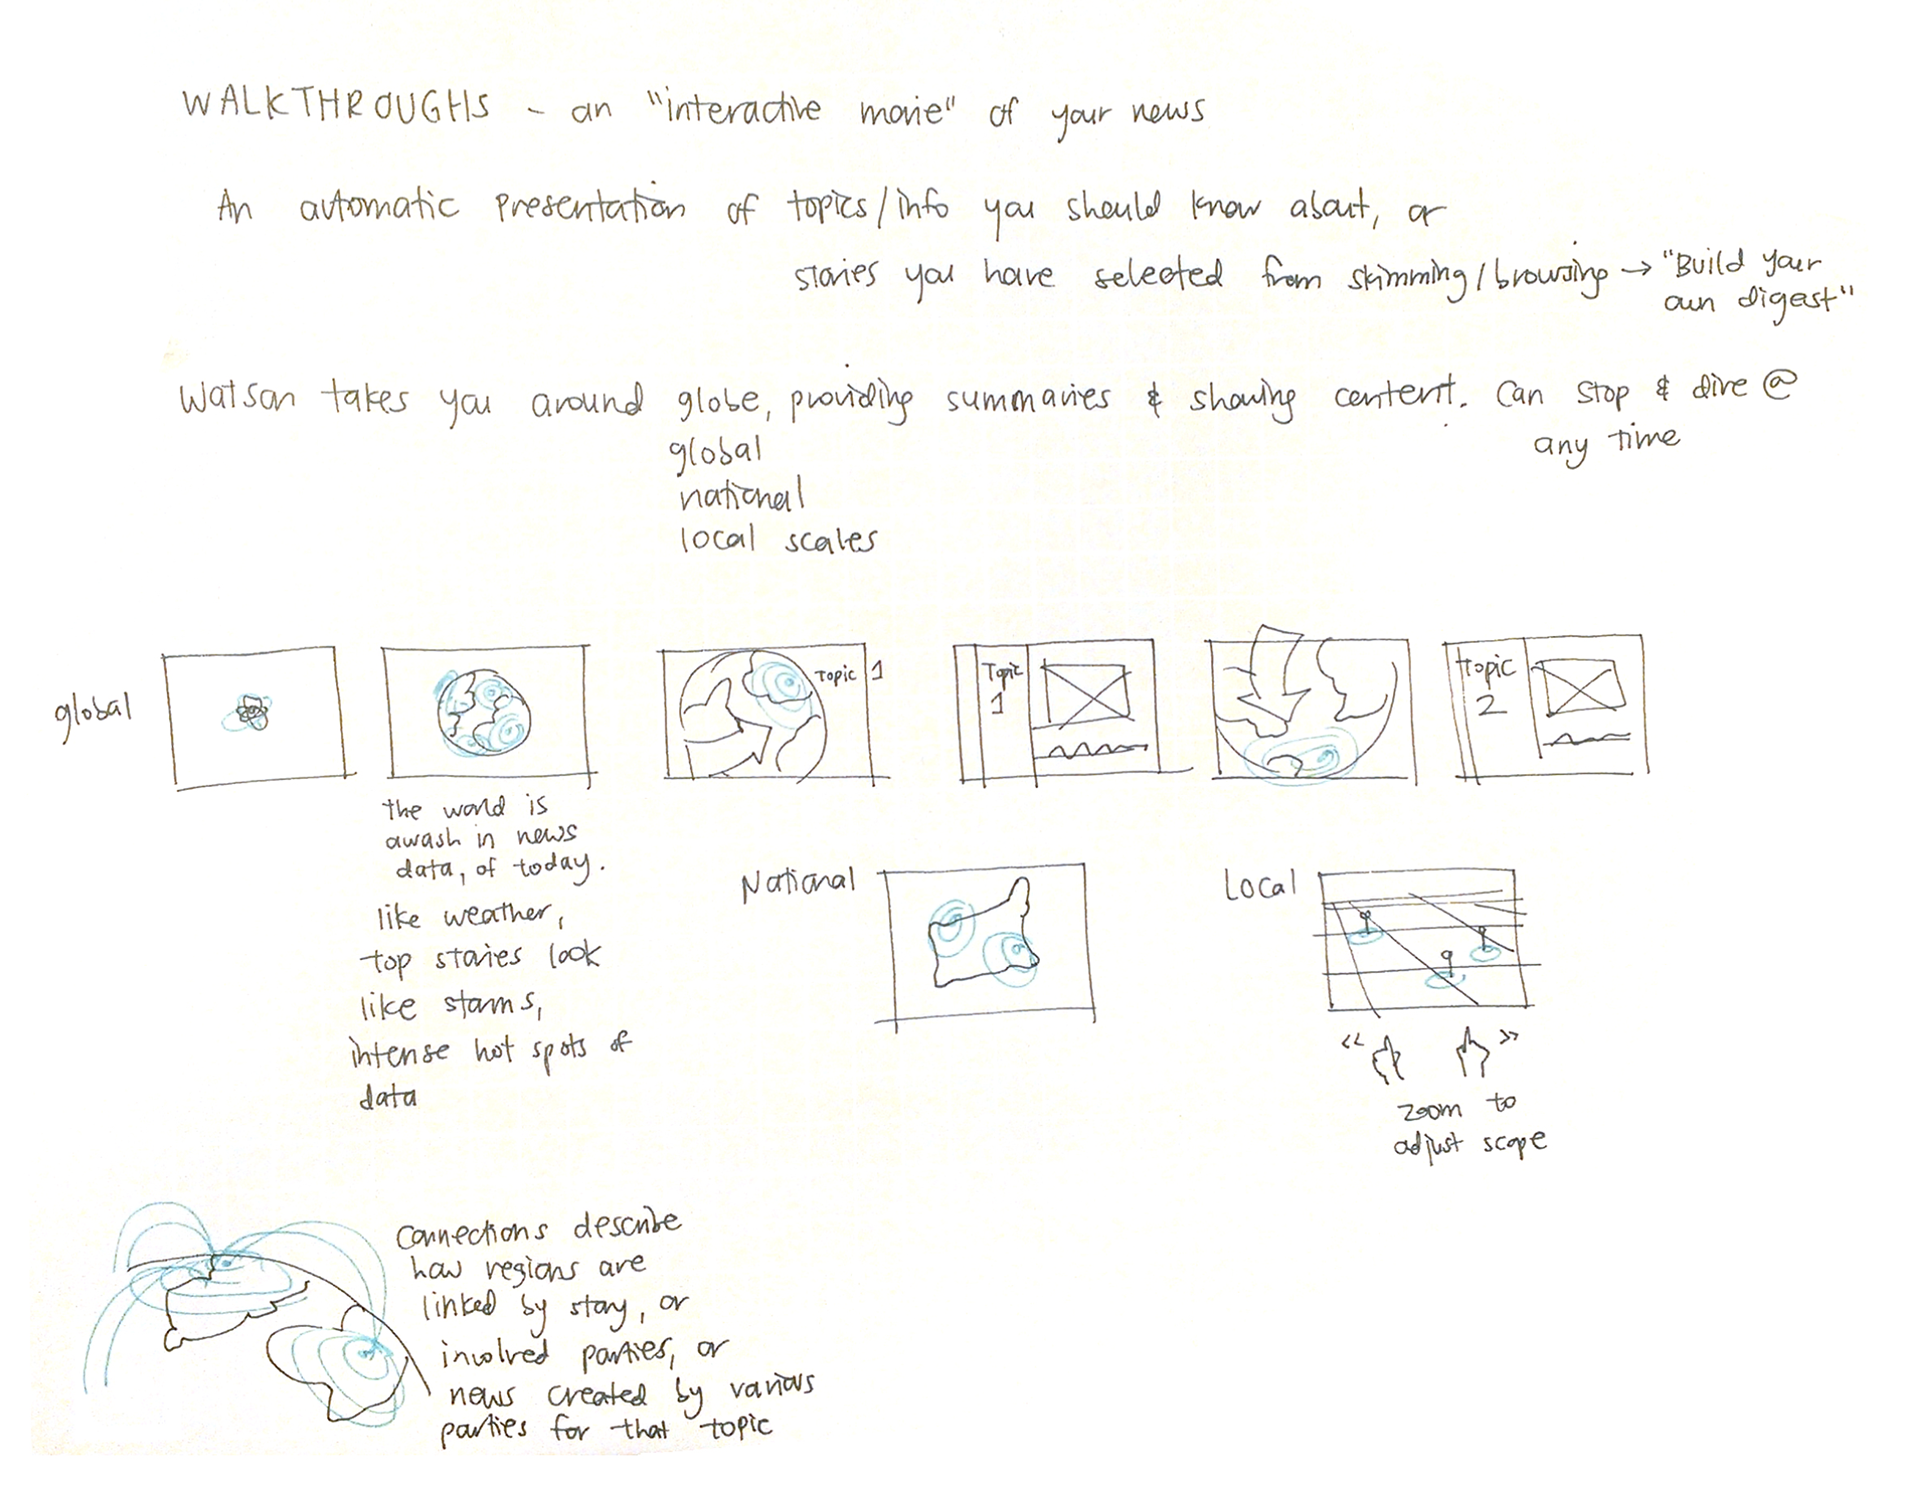 WALKTHROUGHS - an "interactive movie" of your news
An automatic presentation of topics/info you should know about, or
stories you have selected from skimming/browsing → "Build your
own digest"
Watson takes you around globe, providing summaries & showing content. Can stop & dive @
any time
global
national
local scales
global
Topic 1
Topic
1
Topic
2
the world is
awash in news
data, of today.
like weather,
top stories look
like storms,
intense hot spots of
data
National
Local
<< >>
zoom to
adjust scope
Connections describe
how regions are
linked by story, or
involved parties, or
news created by various
parties for that topic